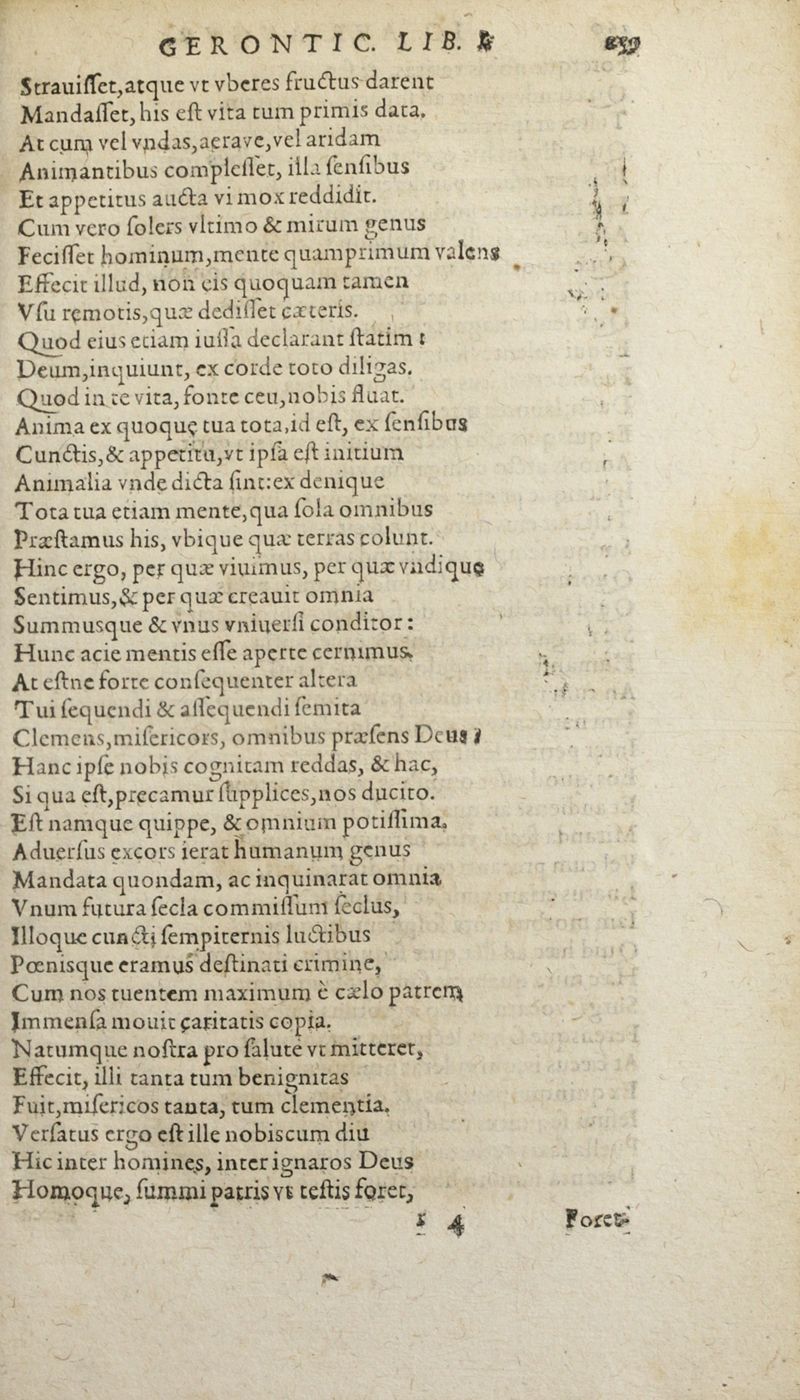 GERONTIC. LIB.
Strauiſſet,atque vt vberes fructus darent
Mandaſſet, his eſt vita tum primis data.
At cum vel vndas,aerave,vel aridam
Animantibus compleſſet, illa ſenſibus
Et appetitus aucta vi mox reddidit.
Cum vero ſolers vltimo & mirum genus
Feciſſet hominum,mente quamprimum valens
Effecit illud, non eis quoquam tamen
Vſu remotis,quæ dediſſet cæteris.
Quod eius etiam iuſſa declarant ſtatim :
Deum,inquiunt, ex corde toto diligas.
Quod in te vita, fonte ceu,nobis fluat.
Anima ex quoquę tua tota,id eſt, ex ſenſibus
Cunctis,& appetitu,vt ipſa eſt initium
Animalia vnde dicta ſint:ex denique
Tota tua etiam mente,qua ſola omnibus
Præſtamus his, vbique quæ terras colunt.
Hinc ergo, per quæ viuimus, per quæ vndique
Sentimus,& per quæ creauit omnia
Summusque & vnus vniuerſi conditor :
Hunc acie mentis eſſe aperte cernimus.
At eſtne forte conſequenter altera
Tui ſequendi & aſſequendi ſemita
Clemens,miſericors, omnibus præſens Deus ?
Hanc ipſe nobis cognitam reddas, & hac,
Si qua eſt,precamur ſupplices,nos ducito.
Eſt namque quippe, & omnium potiſſima.
Aduerſus excors ierat humanum genus
Mandata quondam, ac inquinarat omnia
Vnum futura ſecla commiſſum ſcelus,
Illoque cuncti ſempiternis luctibus
Pœnisque eramus deſtinati crimine,
Cum nos tuentem maximum è cælo patrem
Immenſa mouit caritatis copia.
Natumque noſtra pro ſalute vt mitteret,
Effecit, illi tanta tum benignitas
Fuit,miſericos tanta, tum clementia.
Verſatus ergo eſt ille nobiscum diu
Hic inter homines, inter ignaros Deus
Homoque, ſummi patris vt teſtis foret,
4 Foret